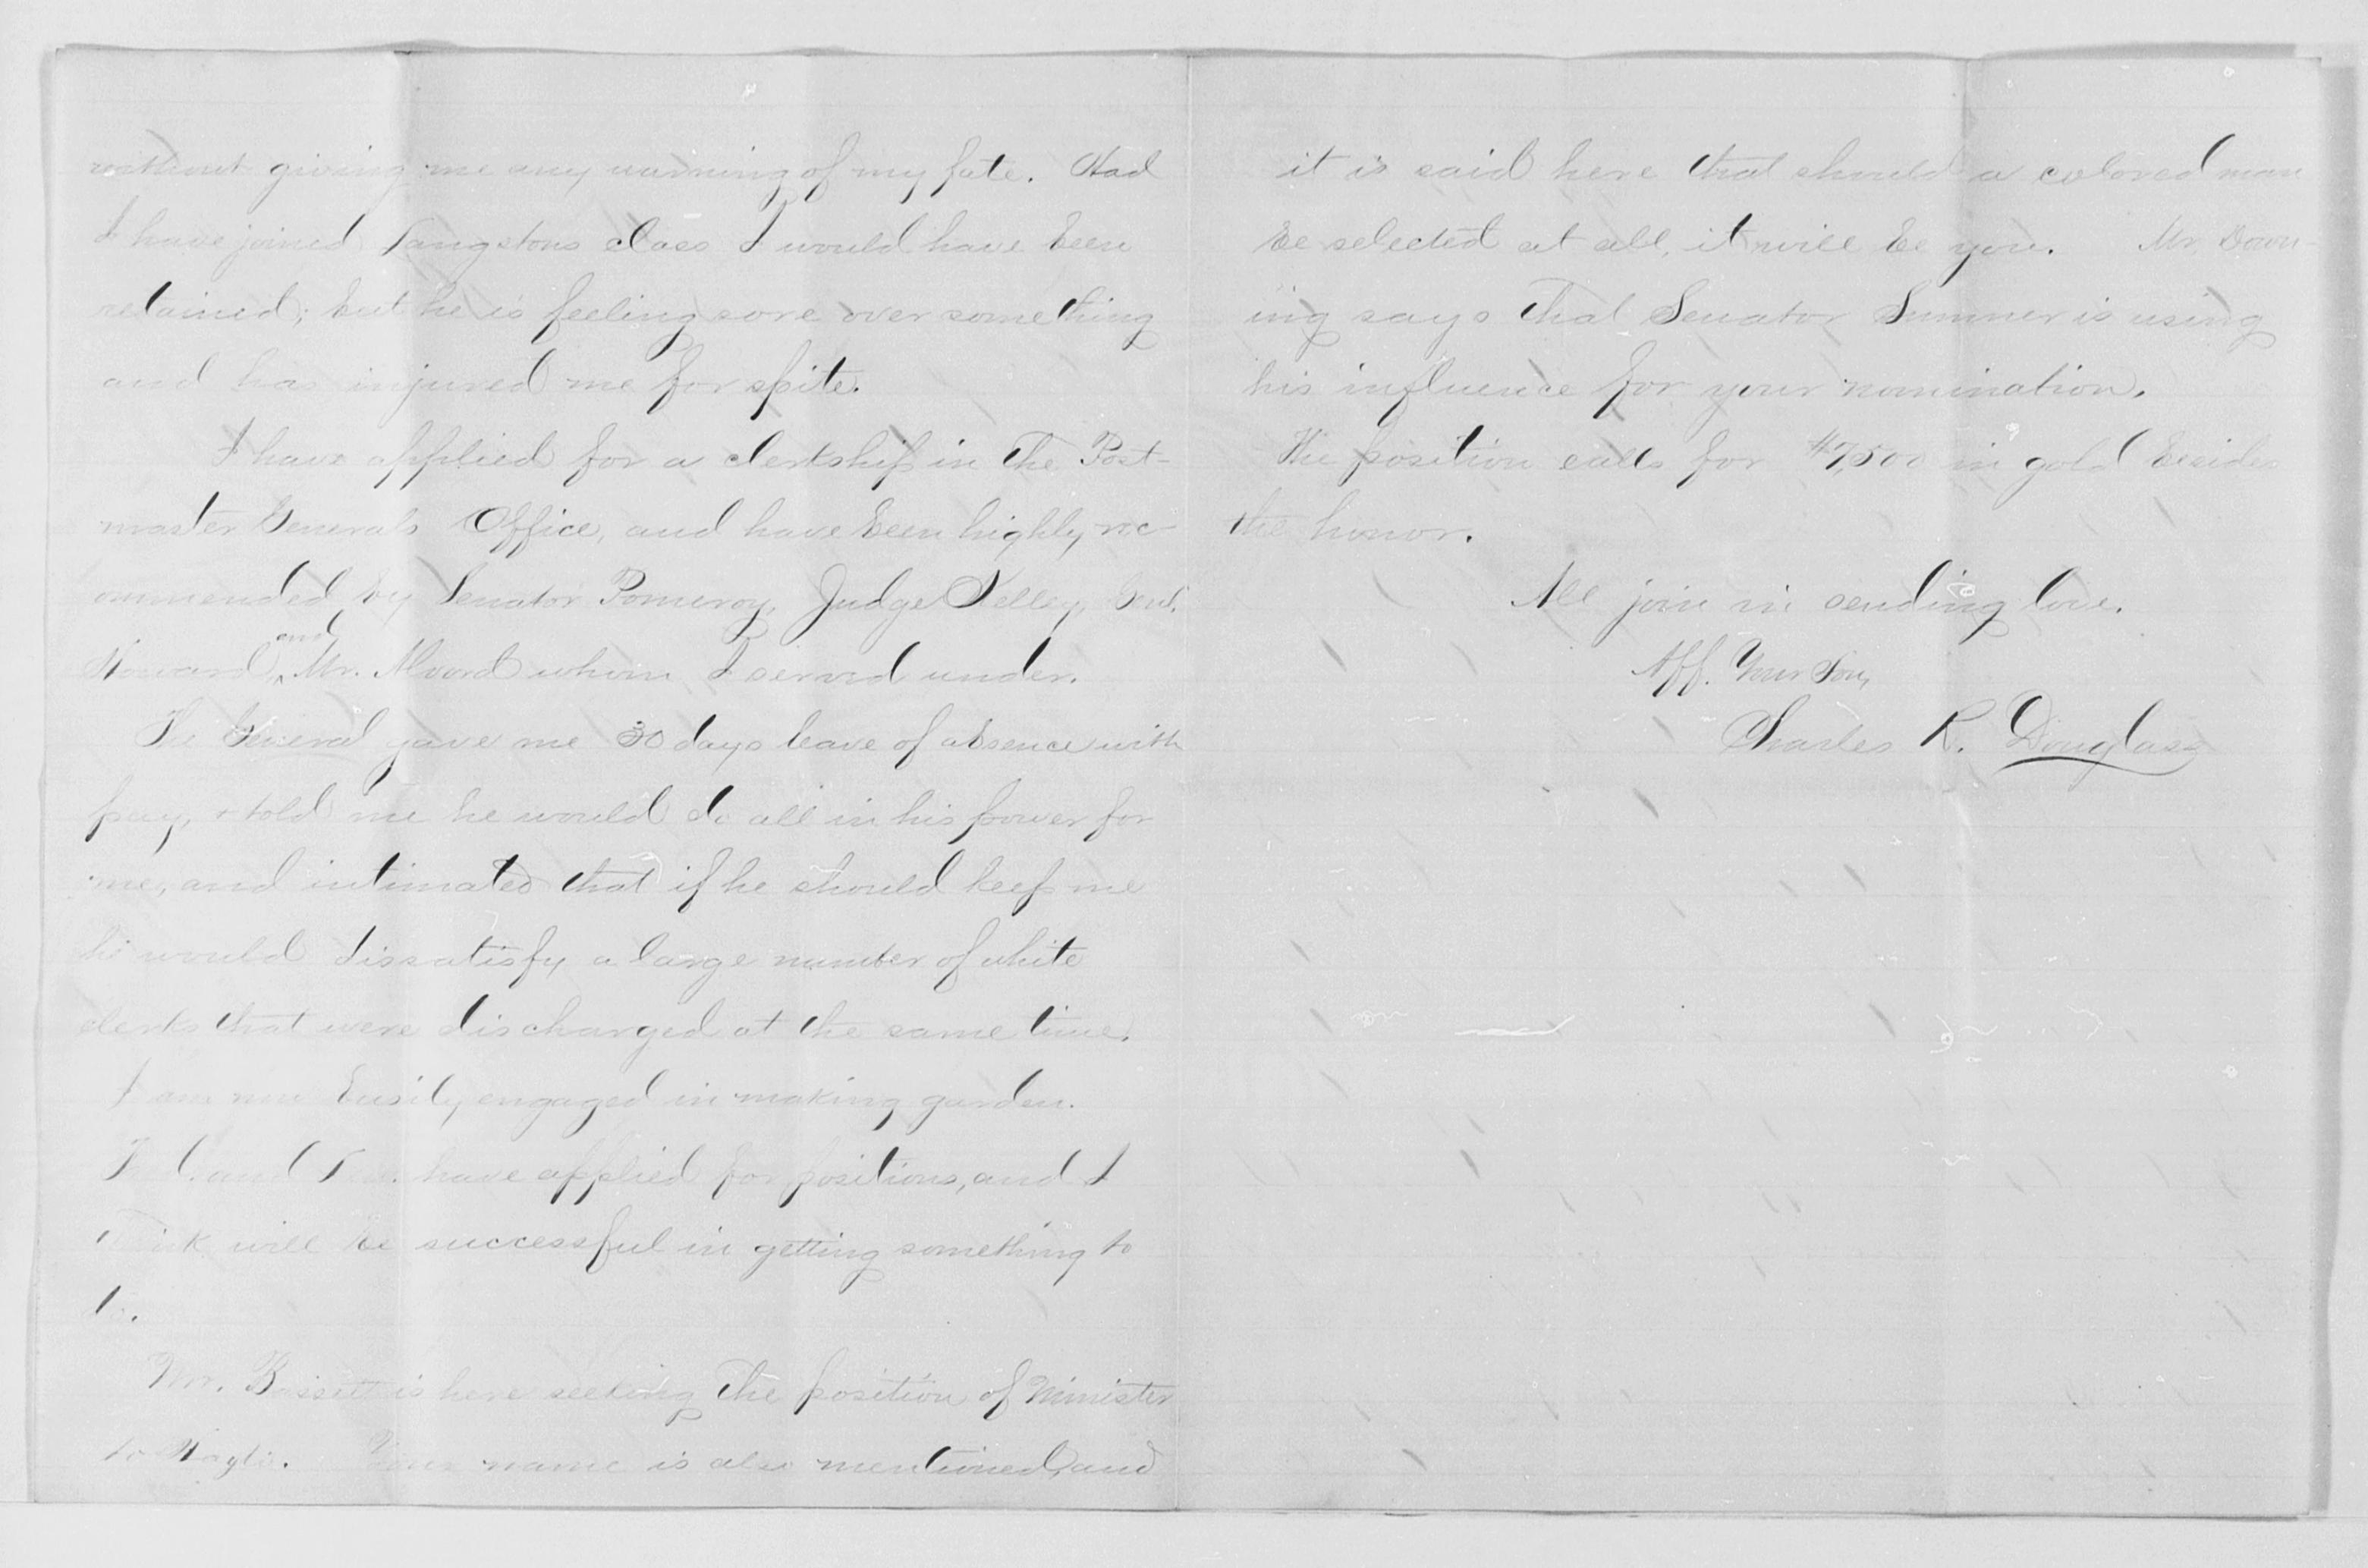 without giving me any warning of my fate. Had
I have joined Langstons class I would have been
retained; but he is feeling sore over something
and has injured me for spite.
I have applied for a clerkship in the Post-
master Generals Office, and have been highly rec-
ommended by Senator Pomeroy, Judge Kelley, Genl.
and
Howard ^ Mr. Alvord whom I served under.
The General gave me 30 days leave of absence with
pay, & told me he would do all in his power for
me, and intimated that if he should keep me
he would dissatisfy a large number of white
clerks that were discharged at the same time.
I am now busily engaged in making garden.
Fred. and Lew. have applied for positions, and I
think will be successful in getting something to
do.
Mr. Bassett is here seeking the position of Minister
to Hayti. Your name is also mentioned, and
it is said here that should a colored man
be selected at all, it will be you. Mr. Down-
ing says that Senator Sumner is using
his influence for your nomination.
The position calls for $7,500 in gold besides
the honor.
All join in sending love.
Aff. Your Son,
Charles R. Douglass